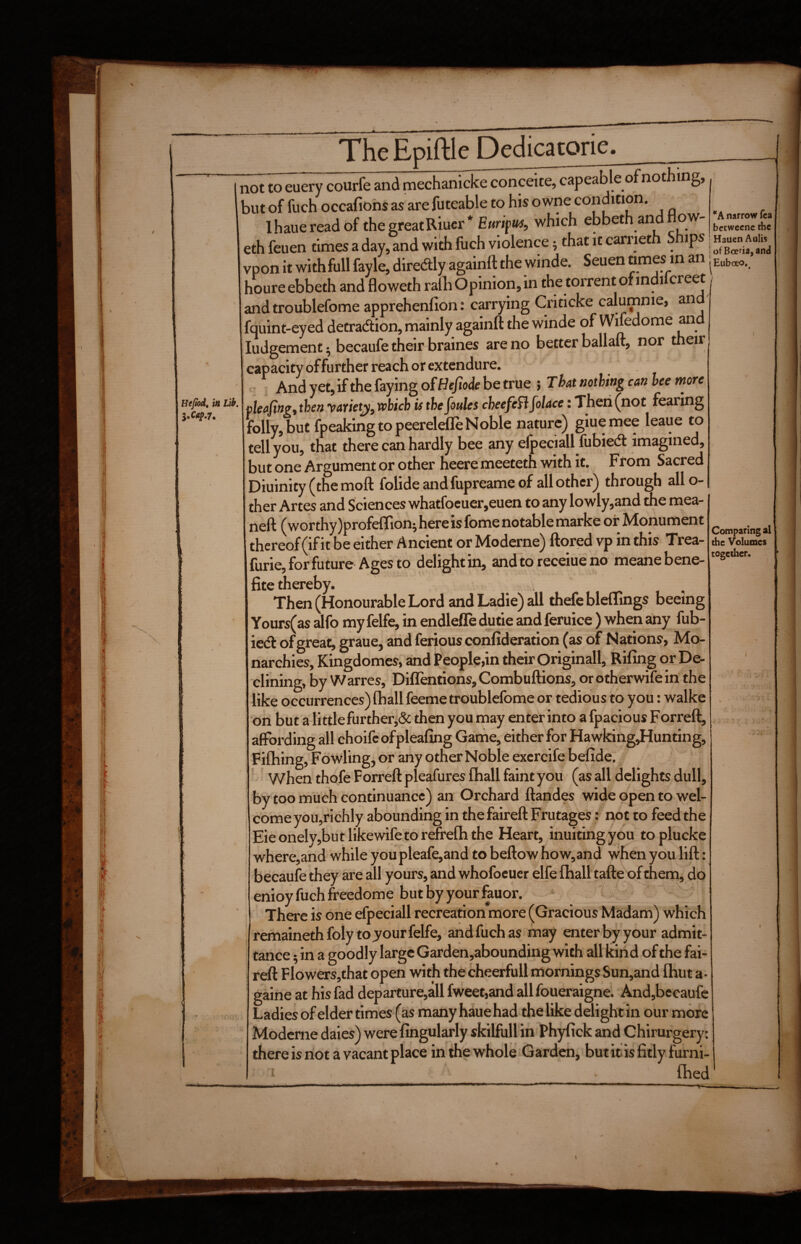 The Epiſtle Dedicatorie.
not to euery courſe and mechanicke conceite, capeable of nothing,
but of ſuch occaſions as are ſuteable to his owne condition.
I haue read of the great Riuer * Euripus, which ebbeth and flow-
eth ſeuen times a day, and with ſuch violence; that it carrieth Ships
vpon it with full ſayle, directly againſt the winde. Seuen times in an
houre ebbeth and floweth raſh Opinion, in the torrent of indiſcreet
and troubleſome apprehenſion: carrying Criticke calumnie, and
ſquint-eyed detraction, mainly againſt the winde of Wiſedome and
Iudgement; becauſe their braines are no better ballaſt, nor their
capacity of further reach or extendure.
And yet, if the ſaying of Heſiode be true; That nothing can bee more
pleaſing, then variety, which is the ſoules cheefeſt ſolace: Then (not fearing
folly, but ſpeaking to peereleſſe Noble nature) giue mee leaue to
tell you, that there can hardly bee any eſpeciall ſubiect imagined,
but one Argument or other heere meeteth with it. From Sacred
Diuinity (the moſt ſolide and ſupreame of all other) through all o-
ther Artes and Sciences whatſoeuer, euen to any lowly, and the mea-
neſt (worthy) profeſſion; here is ſome notable marke or Monument
thereof (if it be either Ancient or Moderne) ſtored vp in this Trea-
ſurie, for future Ages to delight in, and to receiue no meane bene-
fite thereby.
Then (Honourable Lord and Ladie) all theſe bleſſings beeing
Yours (as alſo my ſelfe, in endleſſe dutie and ſeruice) when any ſub-
iect of great, graue, and ſerious conſideration (as of Nations, Mo-
narchies, Kingdomes, and People, in their Originall, Riſing or De-
clining, by Warres, Diſſentions, Combuſtions, or otherwiſe in the
like occurrences) ſhall ſeeme troubleſome or tedious to you: walke
on but a little further, & then you may enter into a ſpacious Forreſt,
affording all choiſe of pleaſing Game, either for Hawking, Hunting,
Fiſhing, Fowling, or any other Noble exerciſe beſide.
When thoſe Forreſt pleaſures ſhall faint you (as all delights dull,
by too much continuance) an Orchard ſtandes wide open to wel-
come you, richly abounding in the faireſt Frutages: not to feed the
Eie onely, but likewiſe to refreſh the Heart, inuiting you to plucke
where, and while you pleaſe, and to beſtow how, and when you liſt:
becauſe they are all yours, and whoſoeuer elſe ſhall taſte of them, do
enioy ſuch freedome but by your fauor.
There is one eſpeciall recreation more (Gracious Madam) which
remaineth ſoly to your ſelfe, and ſuch as may enter by your admit-
tance; in a goodly large Garden, abounding with all kind of the fai-
reſt Flowers, that open with the cheerfull mornings Sun, and ſhut a-
gaine at his ſad departure, all ſweet, and all ſoueraigne. And, becauſe
Ladies of elder times (as many haue had the like delight in our more
Moderne daies) were ſingularly skilfull in Phyſick and Chirurgery:
there is not a vacant place in the whole Garden, but it is fitly furni-
ſhed
*A narrow ſea
betweene the
Hauen Aulis
of Bœtia, and
Eubœo.
Heſiod, in Lib.
3. Cap. 7.
Comparing al
the Volumes
together.